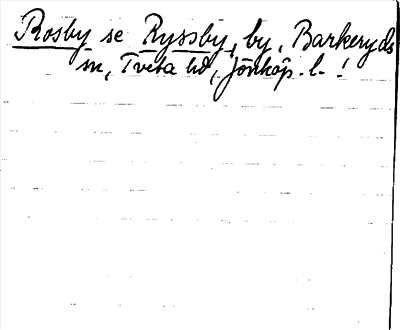 Rosby se Ryssby, by, Barkeryds
sn, Tveta hd, Jönköp. l. !